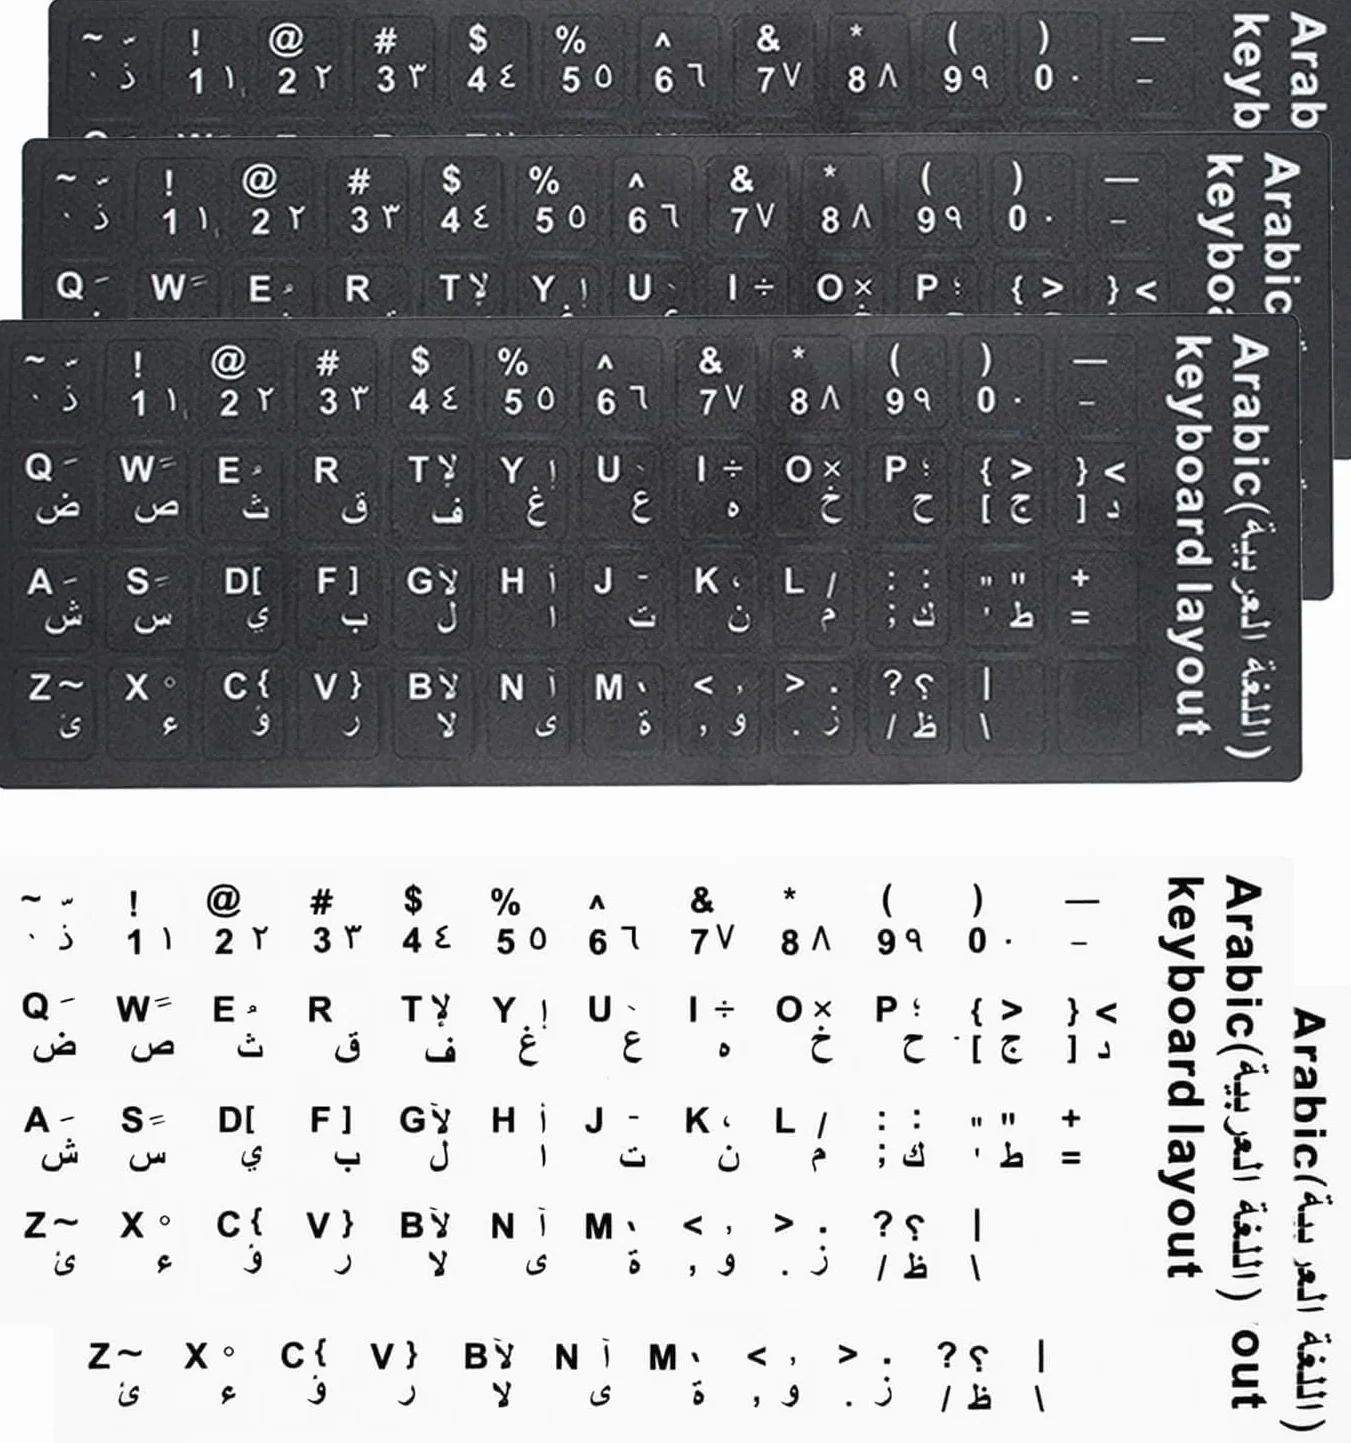 ~ ّ ! @ # $ % ^ & * ( ) —
ذ 1 ١ 2 ٢ 3 ٣ 4 ٤ 5 ٥ 6 ٦ 7 ٧ 8 ٨ 9 ٩ 0 ٠ -
Arab
keyb
~ ّ ! @ # $ % ^ & * ( ) —
ذ 1 ١ 2 ٢ 3 ٣ 4 ٤ 5 ٥ 6 ٦ 7 ٧ 8 ٨ 9 ٩ 0 ٠ -
Q W E R T لإ Y إ U I ÷ O × P ؛ { > } <
Arabic
keyboa
~ ّ ! @ # $ % ^ & * ( ) —
ذ 1 ١ 2 ٢ 3 ٣ 4 ٤ 5 ٥ 6 ٦ 7 ٧ 8 ٨ 9 ٩ 0 ٠ -
Q W E R T لإ Y إ U I ÷ O × P ؛ { > } <
ض ص ث ق ف غ ع ه خ ح [ ج ] د
A S D [ F ] G لأ H أ J - K ، L / : : " " +
ش س ي ب ل ا ت ن م ; ك ' ط =
Z ~ X ° C { V } B لآ N آ M < , > . ? ؟ |
ئ ء ؤ ر لا ى ة , و . ز / ظ \
Arabic(اللغة العربية)
keyboard layout
~ ّ ! @ # $ % ^ & * ( ) —
ذ 1 ١ 2 ٢ 3 ٣ 4 ٤ 5 ٥ 6 ٦ 7 ٧ 8 ٨ 9 ٩ 0 ٠ -
Q W E R T لإ Y إ U I ÷ O × P ؛ { > } <
ض ص ث ق ف غ ع ه خ ح [ ج ] د
A S D [ F ] G لأ H أ J - K ، L / : : " " +
ش س ي ب ل ا ت ن م ; ك ' ط =
Z ~ X ° C { V } B لآ N آ M < , > . ? ؟ |
ئ ء ؤ ر لا ى ة , و . ز / ظ \
Arabic(اللغة العربية)
keyboard layout
Z ~ X ° C { V } B لآ N آ M < , > . ? ؟ |
ئ ء ؤ ر لا ى ة , و . ز / ظ \
Arabic(اللغة العربية)
out